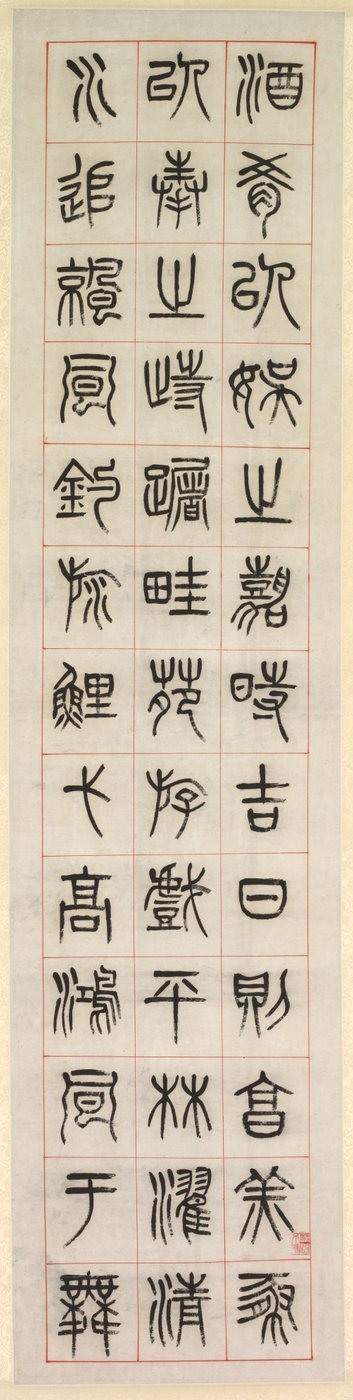 酒肴以娛之嘉時吉日則亯羔豚
以奉之歭躇畦苑斿戲平林濯清
水追風釣斿鯉弋高鴻風于舞